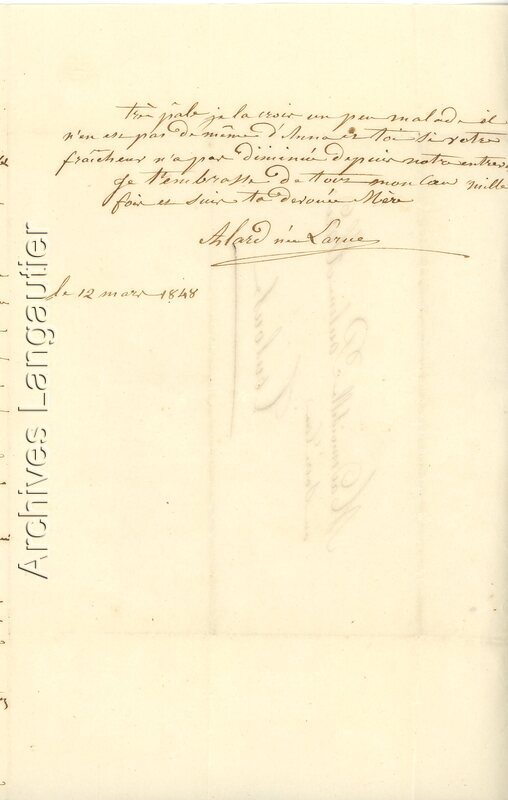 très pâle je la crois un peu malade il
n'en est pas de même d'Anna et toi si votre
fraîcheur n'a pas diminué depuis notre
Je t'embrasse de tout mon cœur mille
fois et suis ta dévouée Mère
Alard née Larue
le 12 mars 1848
Archives Langautier